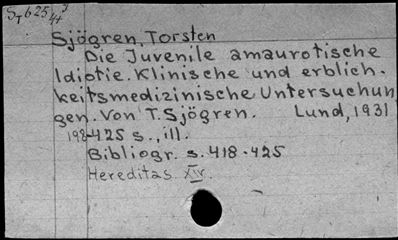 Sjögren, Torsten
Die Juvenile amaurotische
Idiotie. Klinische und erblich-
keitsmedizinische Untersuchun
gen. Von T. Sjögren. Lund, 1931
425 s., ill.
Bibliogr. s. 418-425
Hereditas. XIV.